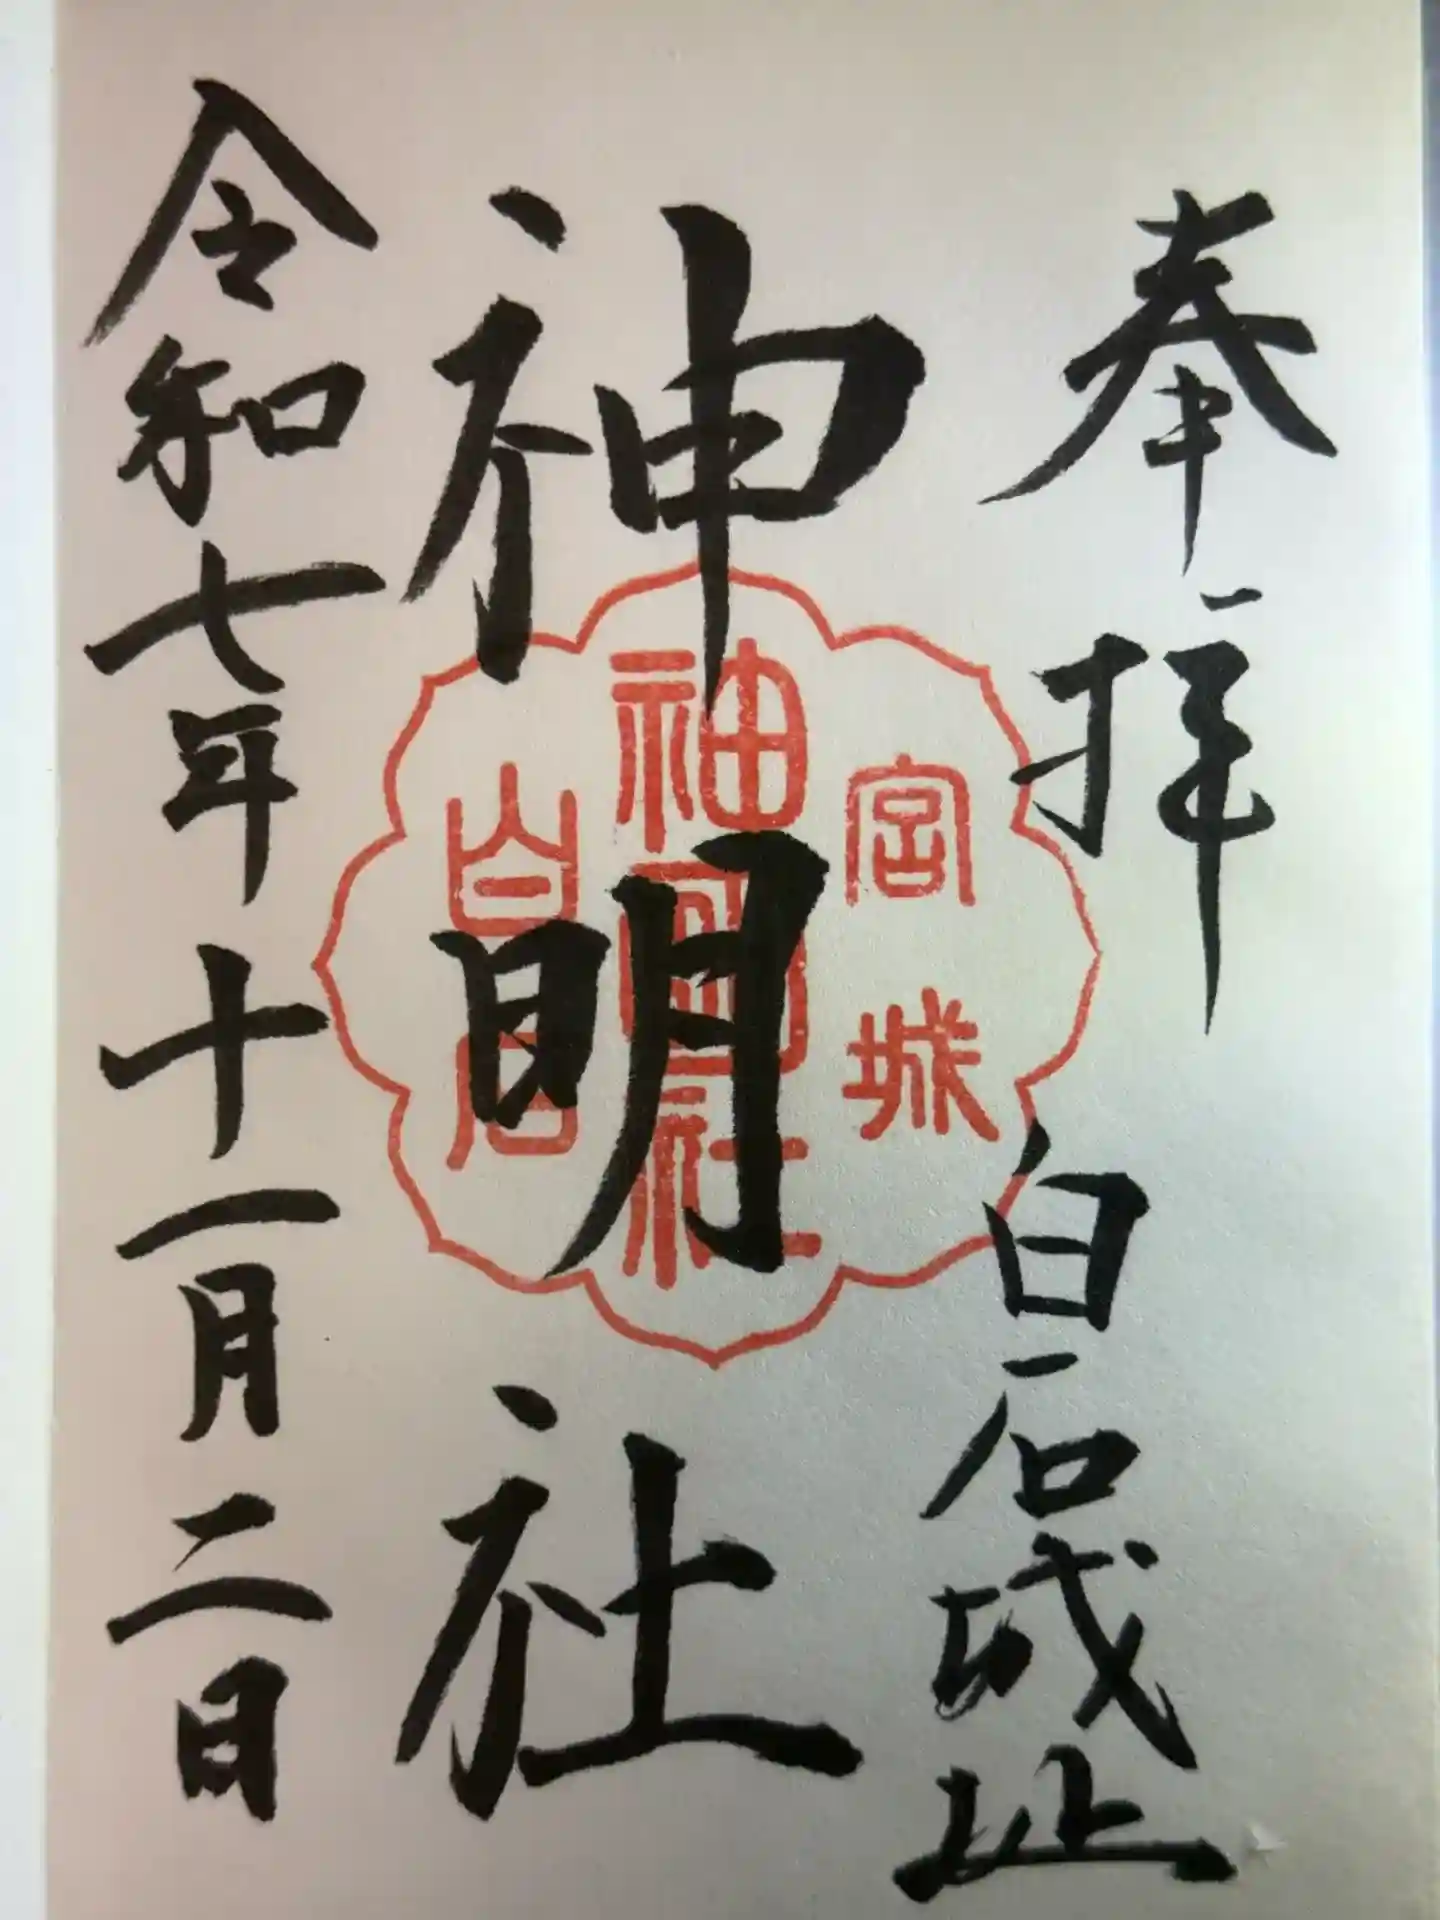 奉拝
白石城址
神明社
令和七年十一月二日
宮城
神明社
白石